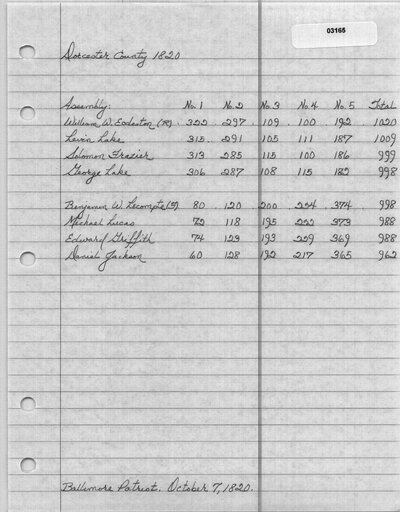 03165
Dorcester County 1820
Assembly: No. 1 No. 2 No. 3 No. 4 No. 5 Total
William W. Eccleston (R) 322 297 109 100 192 1020
Levin Lake 315 291 105 111 187 1009
Solomon Frazier 313 285 115 100 186 999
George Lake 306 287 108 115 182 998
Benjamin W. Lecompte (F) 80 120 200 224 374 998
Michael Lucas 118 195 373 988
Edward Griffith 74 123 193 229 369 988
Daniel Jackson 60 128 192 217 365 962
Baltimore Patriot. October 7, 1820.